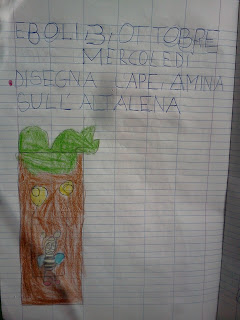 EBOLI 3, OTTOBRE
MERCOLEDI
DISEGNA L'APE AMINIA
SULL'ALTALENA